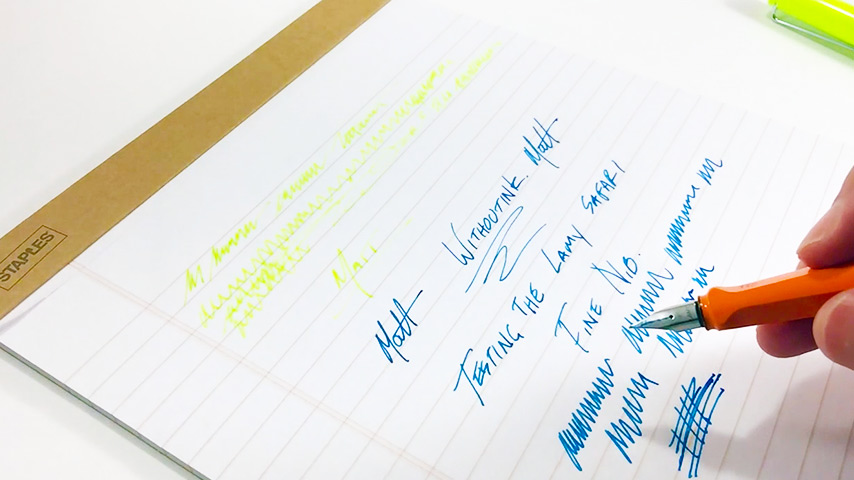 STAPLES
Matt
WITHOUTINK. Matt
TESTING THE LAMY SAFARI
FINE NIB.